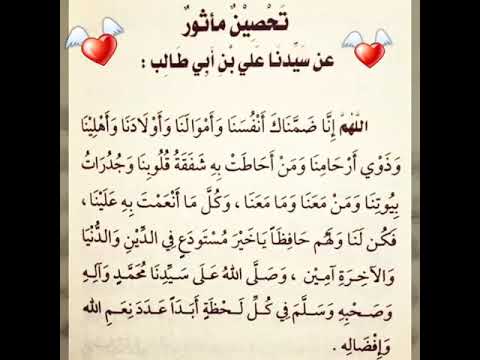 تَحْصِيْنٌ مأثورٌ
عن سَيِّدنَا عَلي بْنِ أبي طَالِب :
اللَّهُمَّ إِنَّا ضَمَّنَاكَ أَنْفُسَنَا وَأَمْوَالَنَا وَأَوْلَادَنَا وَأَهْلِيْنَا
وَذَوِي أَرْحَامِنَا وَمَنْ أَحَاطَتْ بِهِ شَفَقَةُ قُلُوبِنَا وَجُدُرَاتُ
بِيُوتِنَا وَمَنْ مَعَنَا وَمَا مَعَنَا ، وَكُلَّ مَا أَنْعَمْتَ بِهِ عَلَيْنَا ،
فَكُن لَنَا وَلَهُم حَافِظَاً يَاخَيْرَ مُسْتَودَعٍ فِي الدِّيْنِ وَالدُّنْيَا
وَالآخِرَةِ آمِيْن ، وَصَلَّى اللهُ عَلَى سَيِّدِنَا مُحَمَّدٍ وَآلِهِ
وَصَحْبِهِ وَسَلَّمَ فِي كُلِّ لَحْظَةٍ أَبَدَاً عَدَدَ نِعَمِ الله
وَإِفْضَالِه .